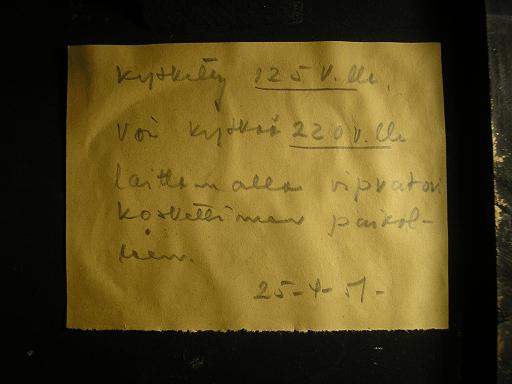 Kytketty 125 V. lle.
Voi kytkeä 220 V. lle
laittamalla vipvatori
koskettimen paikol-
leen.
25-4-51-